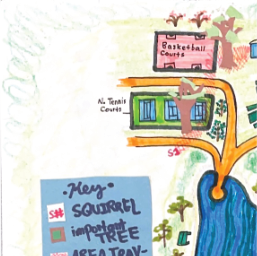 Basketball
Courts
N. Tennis
Courts
S#
• Key •
S# SQUIRREL
important
TREE
AREA TRAV-